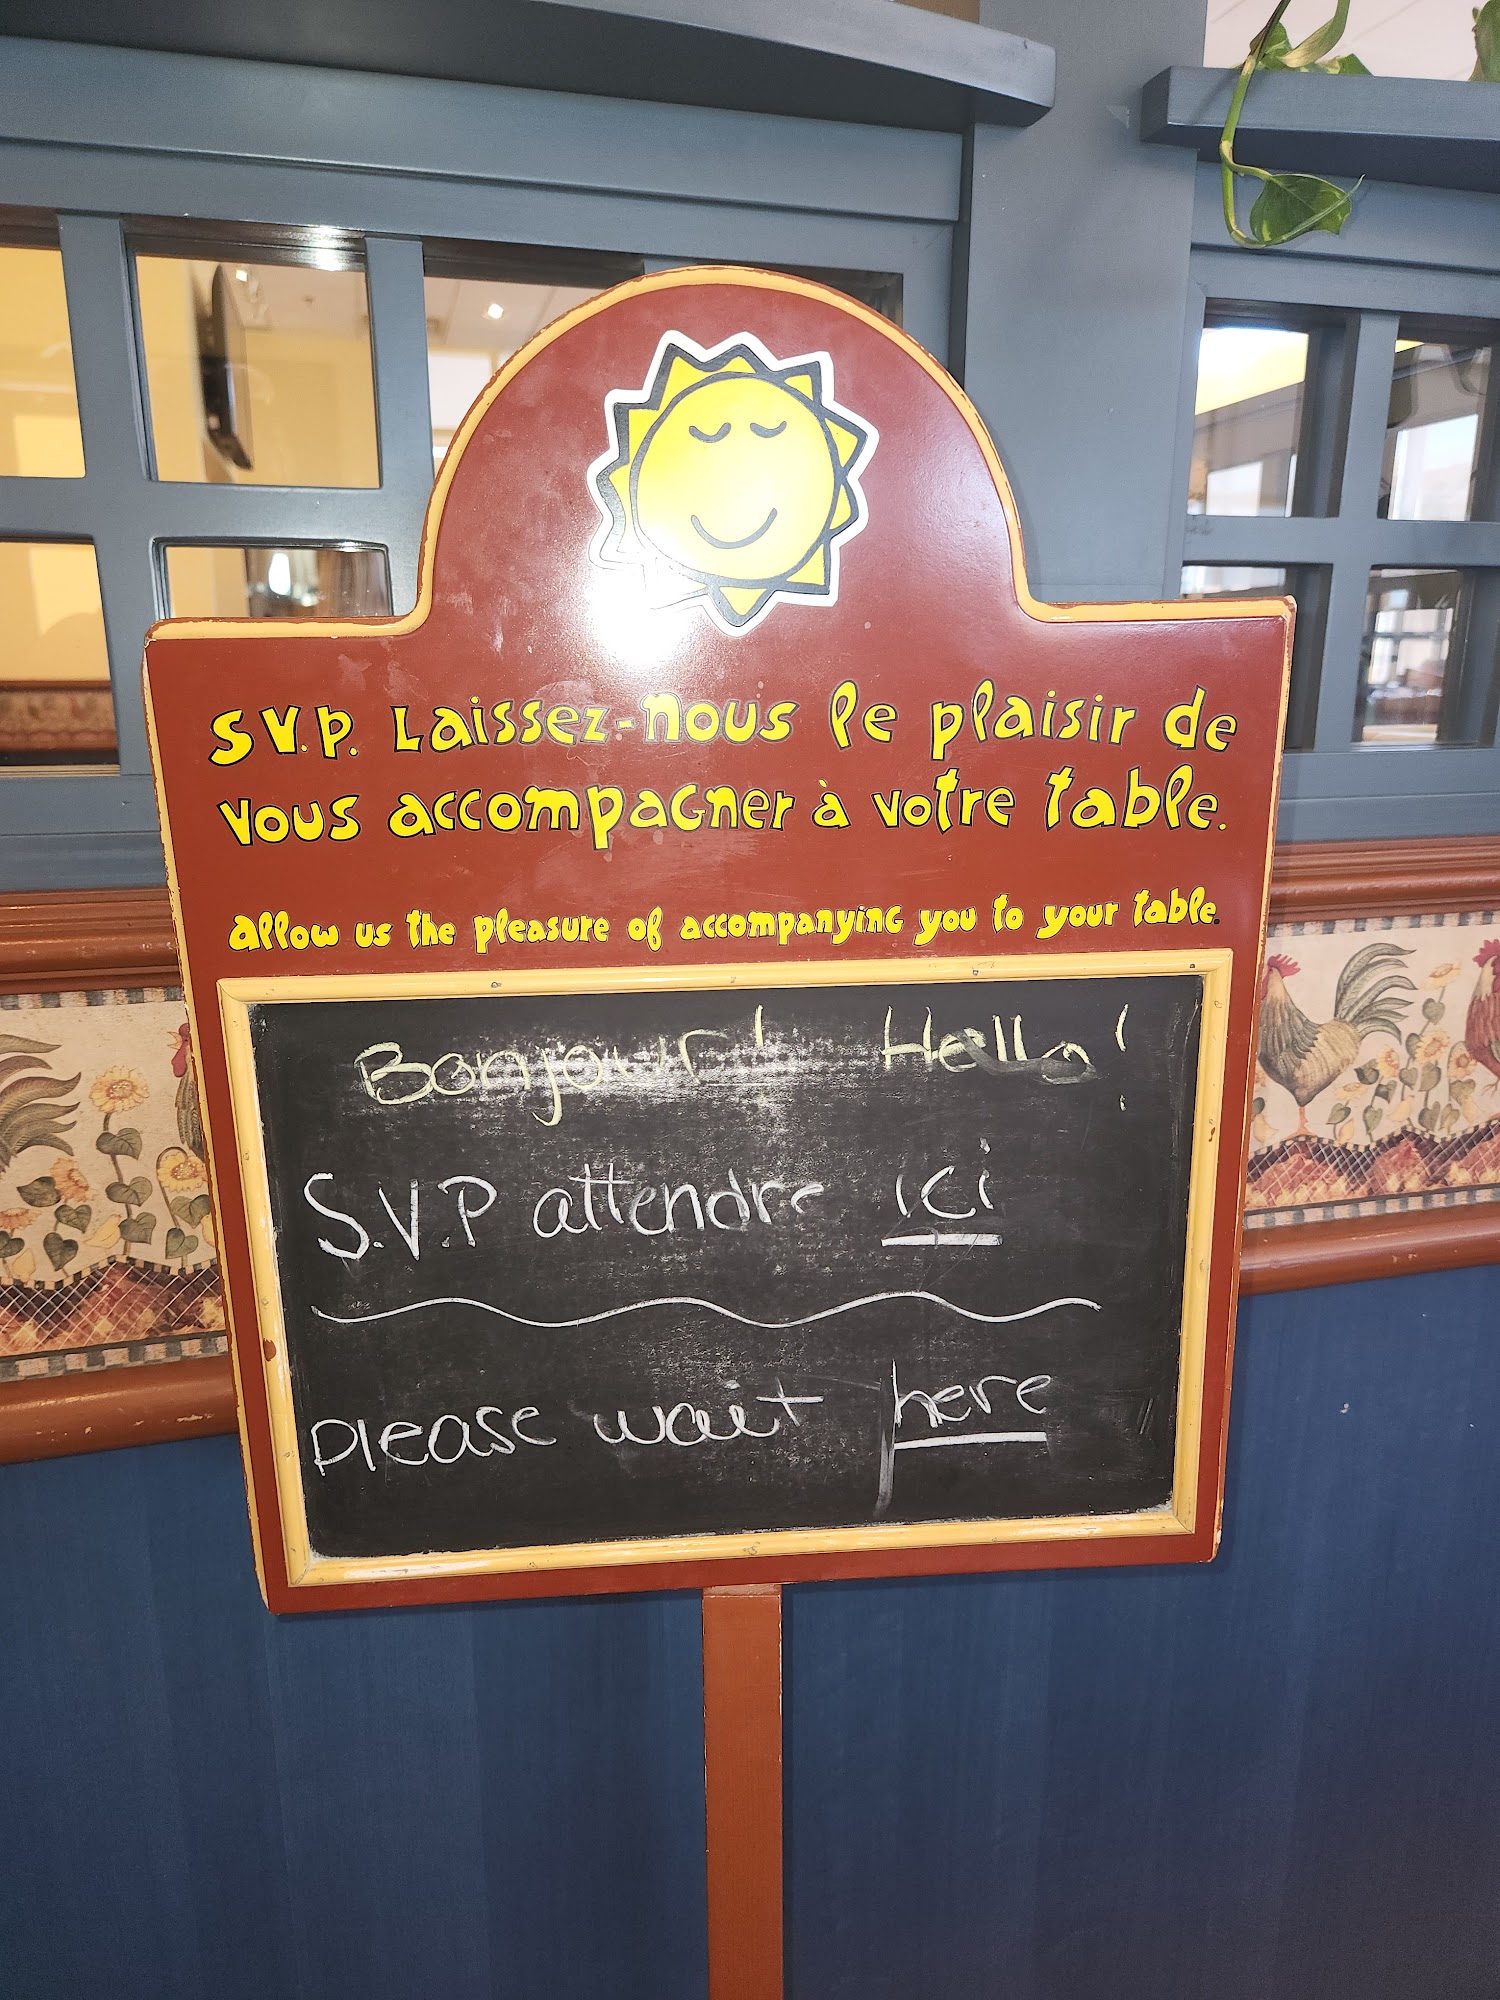 S.V.P. Laissez-nous le plaisir de
vous accompagner à votre table.
allow us the pleasure of accompanying you to your table.
Bonjour! Hello!
S.V.P attendre ici
please wait here